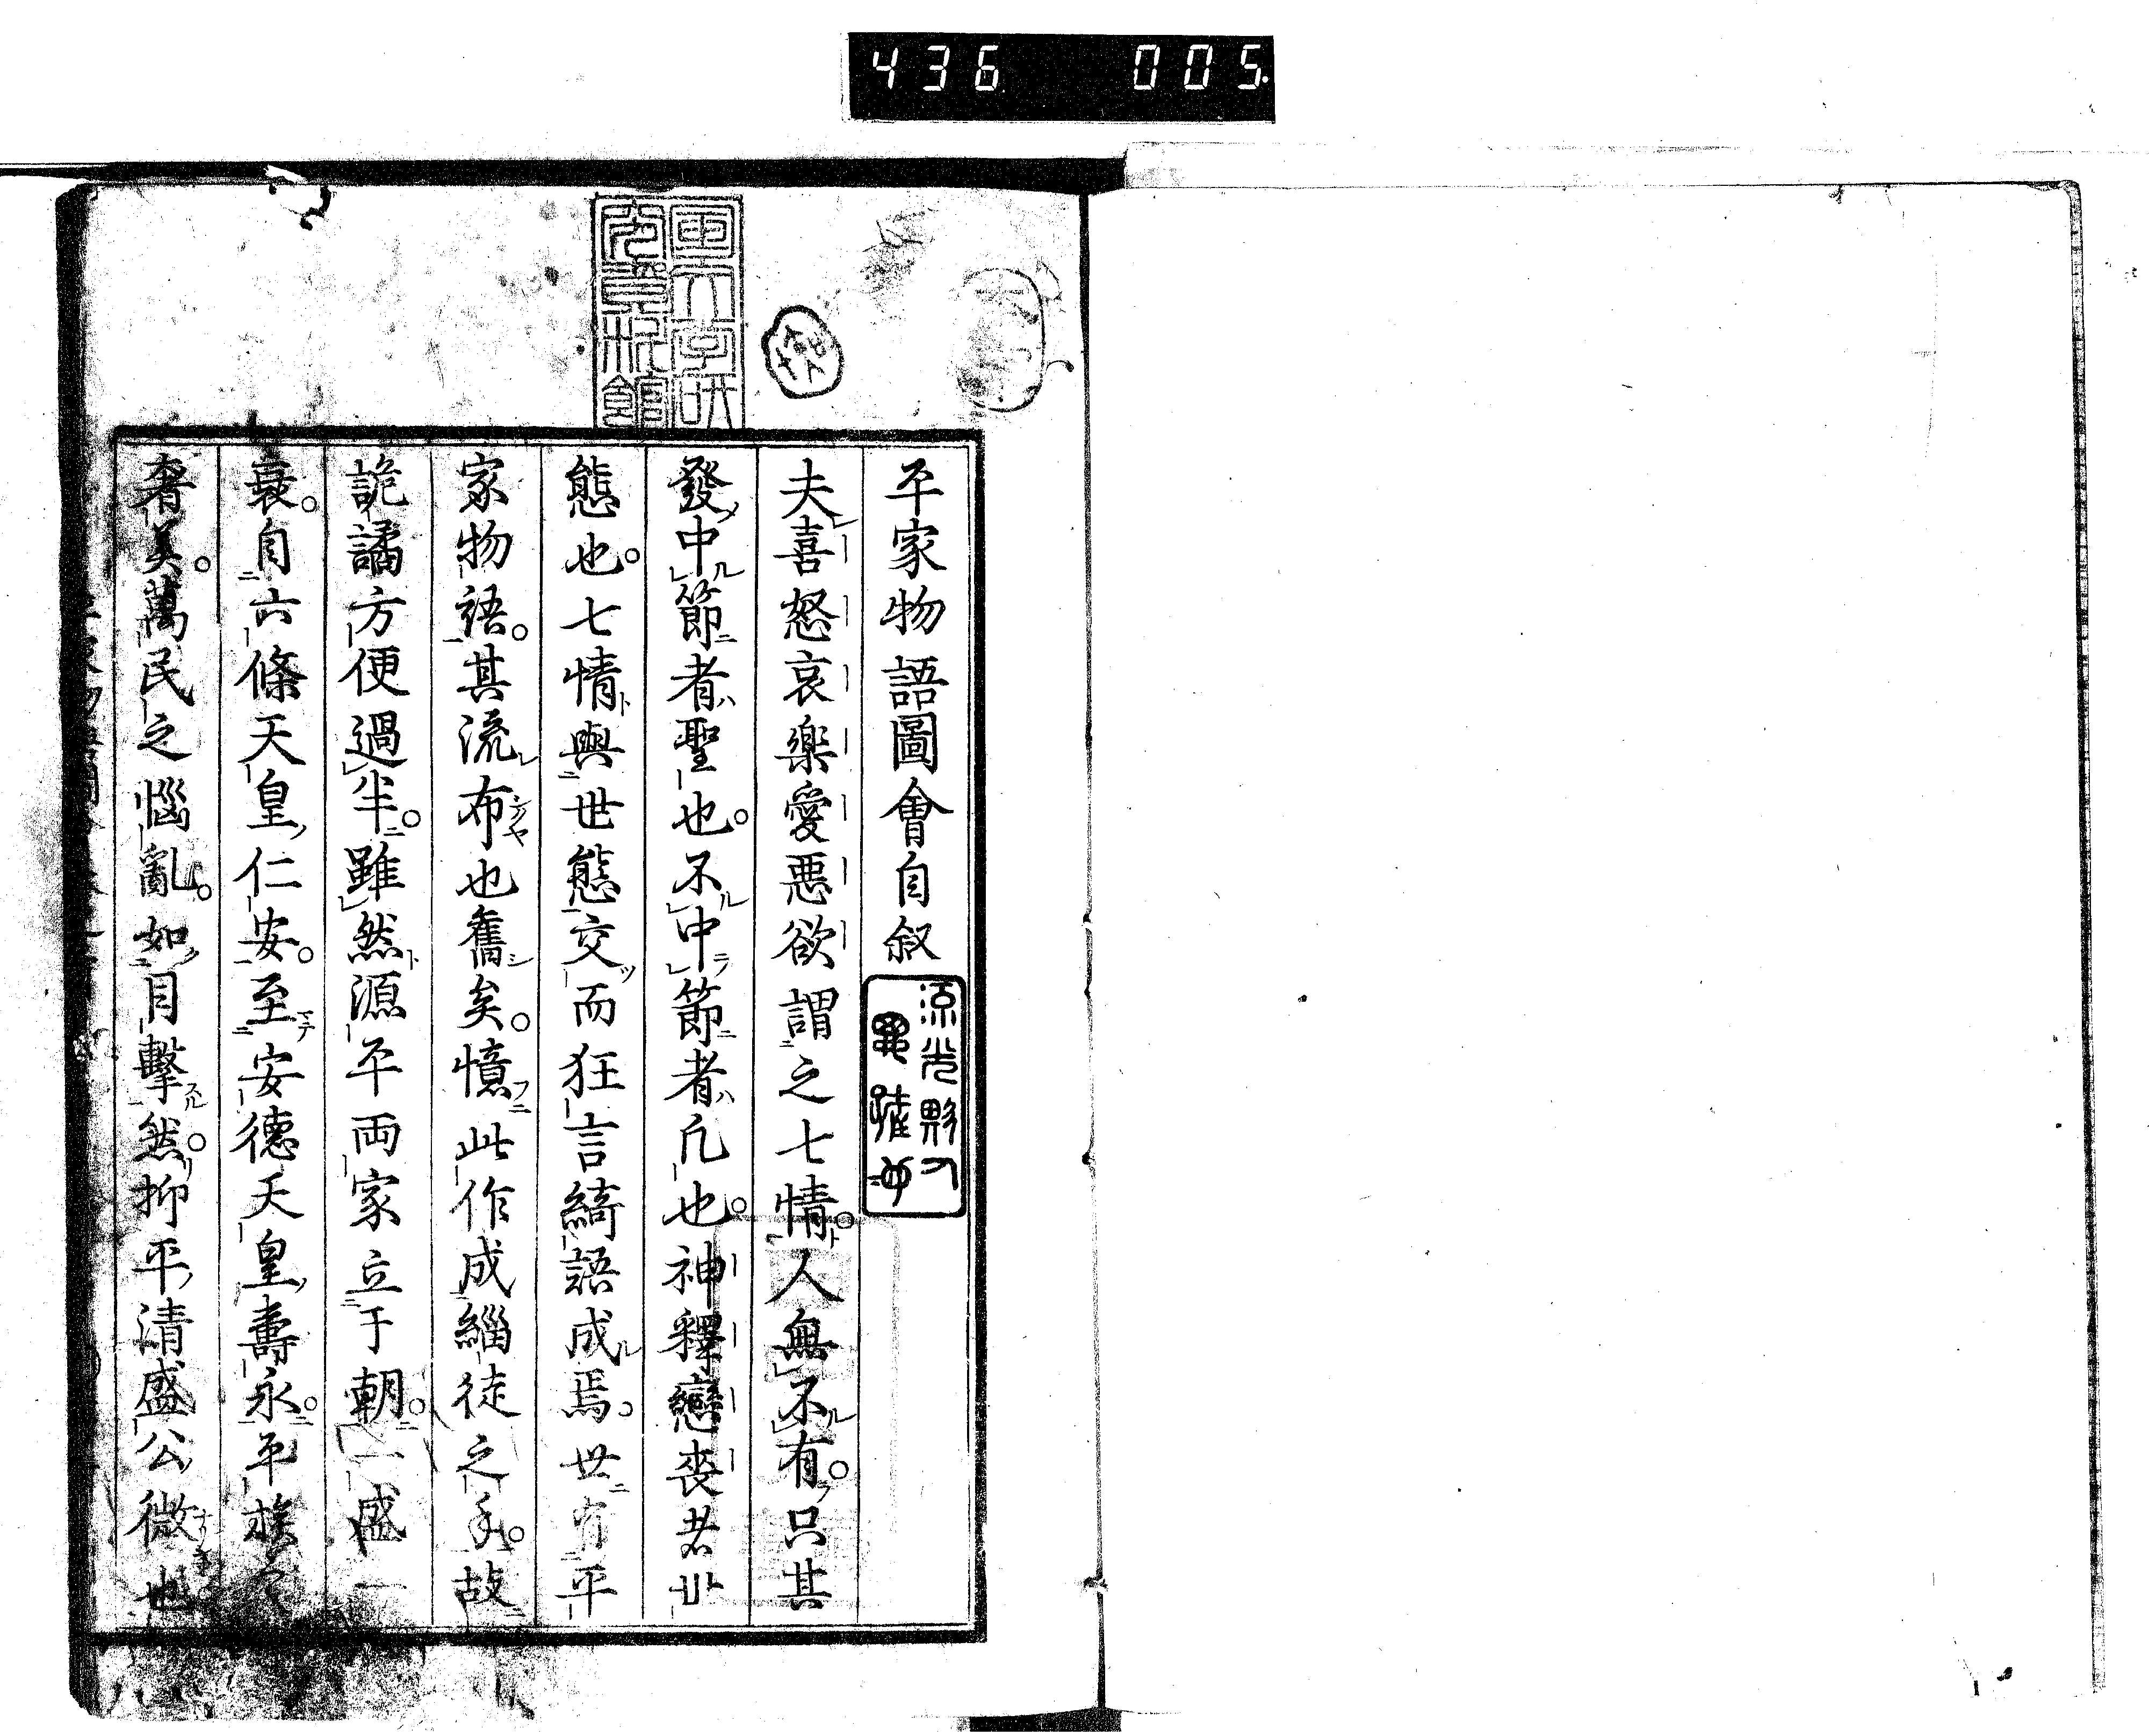 436 005
国文学研
究資料館
平家物語圖會自叙
夫喜怒哀樂愛悪欲謂之七情人無不有只其
發中節者聖也不中節者凡也神釋戀喪者世
態也七情與世態交而狂言綺語成焉世有平
家物語其流布也舊矣憶此作成緇徒之手故
詭譎方便過半雖然源平両家立于朝一盛一
衰自六條天皇仁安至安德天皇壽永平族之
奢美萬民之惱亂如目擊然抑平清盛公微也